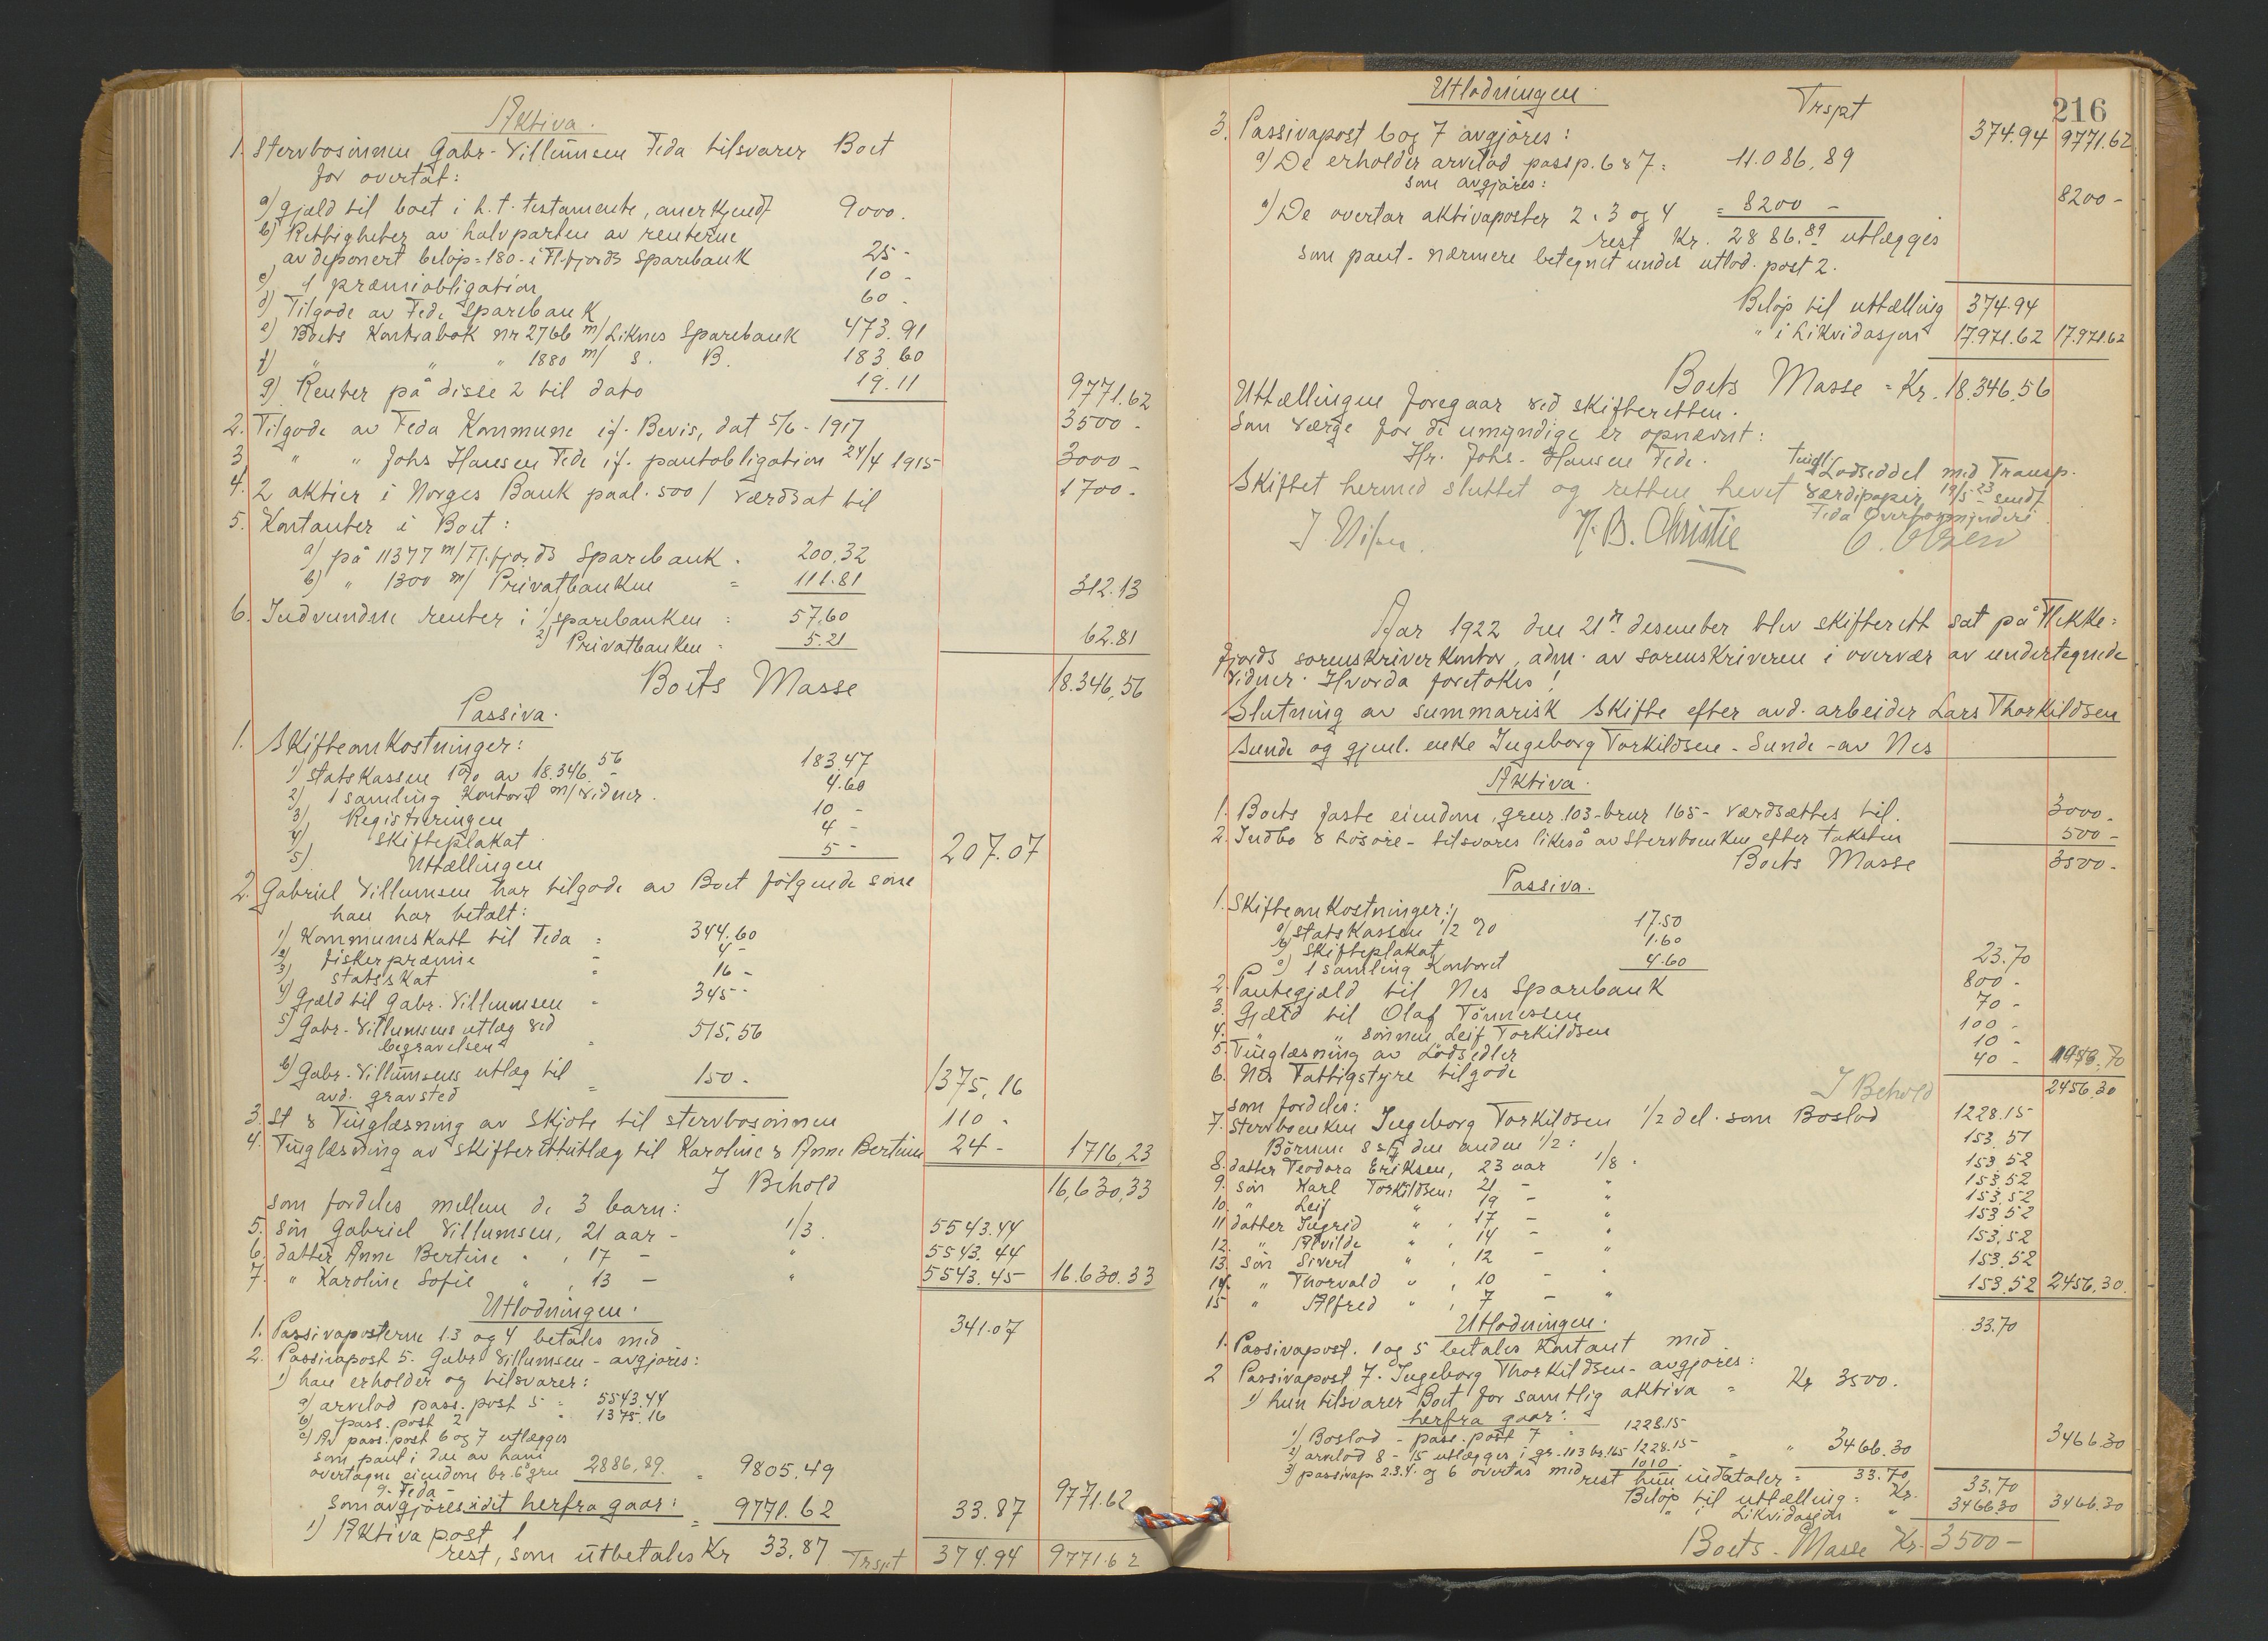 Aktiva.
1. Stervbosønnen Gabr. Villumsen Feda tilsvarer Boet
for overtat:
a) gjæld til boet i h. t. testamente, anerkjendt 9000.
b) Rettigheter av halvparten av renterne
av deponert beløp = 180.- i Fl.fjords Sparebank 25 -
c) 1 præmieobligation 10 -
d) Tilgode av Feda Sparebank 60 -
e) Boets Kontrabok nr 2766 m/ Liknes Sparebank 473.91
f) " " " 1880 m/ s. B. 183.60
g) Renter på disse 2 til dato 19.11 9771.62
2. Tilgode av Feda Kommune if. Bevis, dat 5/6 - 1917 3500 -
3 " " Johs Hansen Fede if. pantobligation 24/4 1915 3000 -
4. 2 aktier i Norges Bank paal. 500 / værdsat til 1700 -
5. Kontanter i Boet:
a) på 11377 m/ Fl.fjords Sparebank. 200,32
b) " 1300 m/ Privatbanken = 111.81 312.13
6. Indvundne renter i 1) sparebanken = 57.60
2) Privatbanken - 5.21 62.81
Boets Masse 18.346,56
Passiva.
1. Skifteomkostninger:
1) statskassen 1% av 18.346.56 183.47
2) 1 samling Kontoret m/ vidner. 4.60
3) Registreringen 10 -
4) Skifteplakat 4 -
5) Uttællingen 5 - 207.07
2. Gabriel Villumsen har tilgode av Boet følgende som
han har betalt:
1) Kommuneskatt til Feda = 344.60
2) fiskerpræmie - 4 -
3) statsskat " 16 -
4) Gjæld til Gabr. Villumsen - 345 -
5) Gabr. Villumsens utlæg ved
begravelsen = 515,56
6) Gabr. Villumsens utlæg til
avd. gravsted = 150. 1375,16
3. St & Tinglæsning av skjøte til stervbosønnen 110 -
4. Tinglæsning av skifterettsutlæg til Karoline & Anne Bertine 24 - 1716,23
I Behold 16,630,33
som fordeles mellem de 3 barn:
5. søn Gabriel Villumsen, 21 aar - 1/3. 5543.44
6. datter Anne Bertine " , 17 - " 5543.44
7. " Karoline Sofie " , 13 - " 5543.45 16.630.33
Utlodningen.
1. Passivaposterne 1.3 og 4 betales med 341.07
2. Passivapost 5. Gabr Villumsen - avgjøres:
1) han erholder og tilsvarer:
a) arvelod pass. post 5 = 5543.44
b) pass. post 2 " 1375.16
c) Av pass. post 6 og 7 utlægges
som pant i den av ham
overtagne eiendom br. 6 gnr 2886,89. = 9805,49
9. Feda -
som avgjøres idet herfra gaar:
1) Aktiva post 1 = 9771.62 9771.62
rest, som utbetales Kr 33,87 33.87
Trspt 374.94 9771.62
216
Utlodningen. Trspt 374.94 9771.62
3. Passivapost 6 og 7 avgjøres:
a) De erholder arvelod passp. 6 & 7 = 11.086,89
som avgjøres:
a) De overtar aktivaposter 2, 3 og 4 = 8200 - 8200 -
rest Kr. 2886.89 utlægges
som pant - nærmere betegnet under utlod. post 2.
Beløp til uttælling 374.94
" i Likvidasjon 17.971.62 17.971.62
Boets Masse = Kr. 18.346,56
Uttællingen foregaar ved skifteretten.
Som værge for de umyndige er opnævnt:
Hr. Johs. Hansen Fede.
Skiftet hermed sluttet og retten hevet
Tingl. Lodseddel med Transp.
værdipapir 19/5 23 sendt
Feda Overformynderi.
J. Nilsen. N. B. Christie O. Olsen
Aar 1922 den 21n. desember blev skifterett sat på Flekke=
fjords sorenskriverkontor, adm. av sorenskriveren i overvær av undertegnede
vidner. Hvorda foretokes!
Slutning av summarisk Skifte efter avd. arbeider Lars Thorkildsen
Sunde og gjenl. enke Ingeborg Torkildsen - Sunde - av Nes
Aktiva.
1. Boets faste eiendom, gnr. 103 - brnr 165 - værdsættes til. 3000.
2. Indbo & Løsøre - tilsvares likeså av stervboenken efter taksten 500 -
Boets Masse 3500 -
Passiva.
1. Skifteomkostninger:
a) statskassen 1/2 % 17.50
b) Skifteplakat 1.60
c) 1 samling Kontoret 4.60 23.70
2. Pantegjæld til Nes Sparebank 800 -
3. Gjæld til Olaf Tønnessen 70 -
4. " " sønnen Leif Torkildsen 100 -
5. Tinglæsning av Lodsedler 10 -
6. Nes Fattigstyre tilgode 40 - 1043,70
I Behold 2456.30
som fordeles:
7. Stervboenken Ingeborg Torkildsen 1/2 del. som Boslod 1228.15
Børnene 8 stk den anden 1/2:
8. datter Teodora Eriksen, 23 aar 1/8 - 153.51
9. søn Karl Torkildsen, 21 - " 153.52
10. " Leif " 19 - " 153.52
11 datter Ingrid " , 17 - " 153.52
12. " Alvilde " , 14 - " 153.52
13. søn Sivert " , 12 - " 153.52
14. " Thorvald " , 10 - " 153.52
15 " Alfred " , 7 - " 153.52 2456.30.
Utlodningen.
1. Passivapost. 1 og 5 betales Kontant med 33.70
2 Passivapost 7. Ingeborg Thorkildsen - avgjøres:
1) hun tilsvarer Boet for samtlig aktiva = Kr 3500.
herfra gaar:
1) Boslod - pass. post 7 " 1228.15
2) arvelod 8 - 15 utlægges i gr. 103 br. 165 1228.15 -
3) passivap 2.3.4. og 6 overtas med 1010 = " 3466.30 3466.30
rest hun indbetaler = 33.70
Beløp til uttælling = Kr. 33.70
" i Likvidasjon " 3466.30 3466.30
Boets - Masse Kr. 3500 -